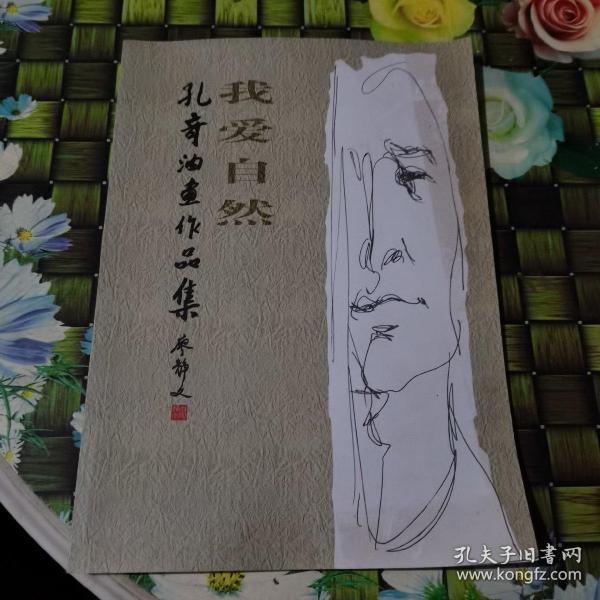 我爱自然
孔奇油画作品集
廖静文
孔夫子旧书网
www.kongfz.com